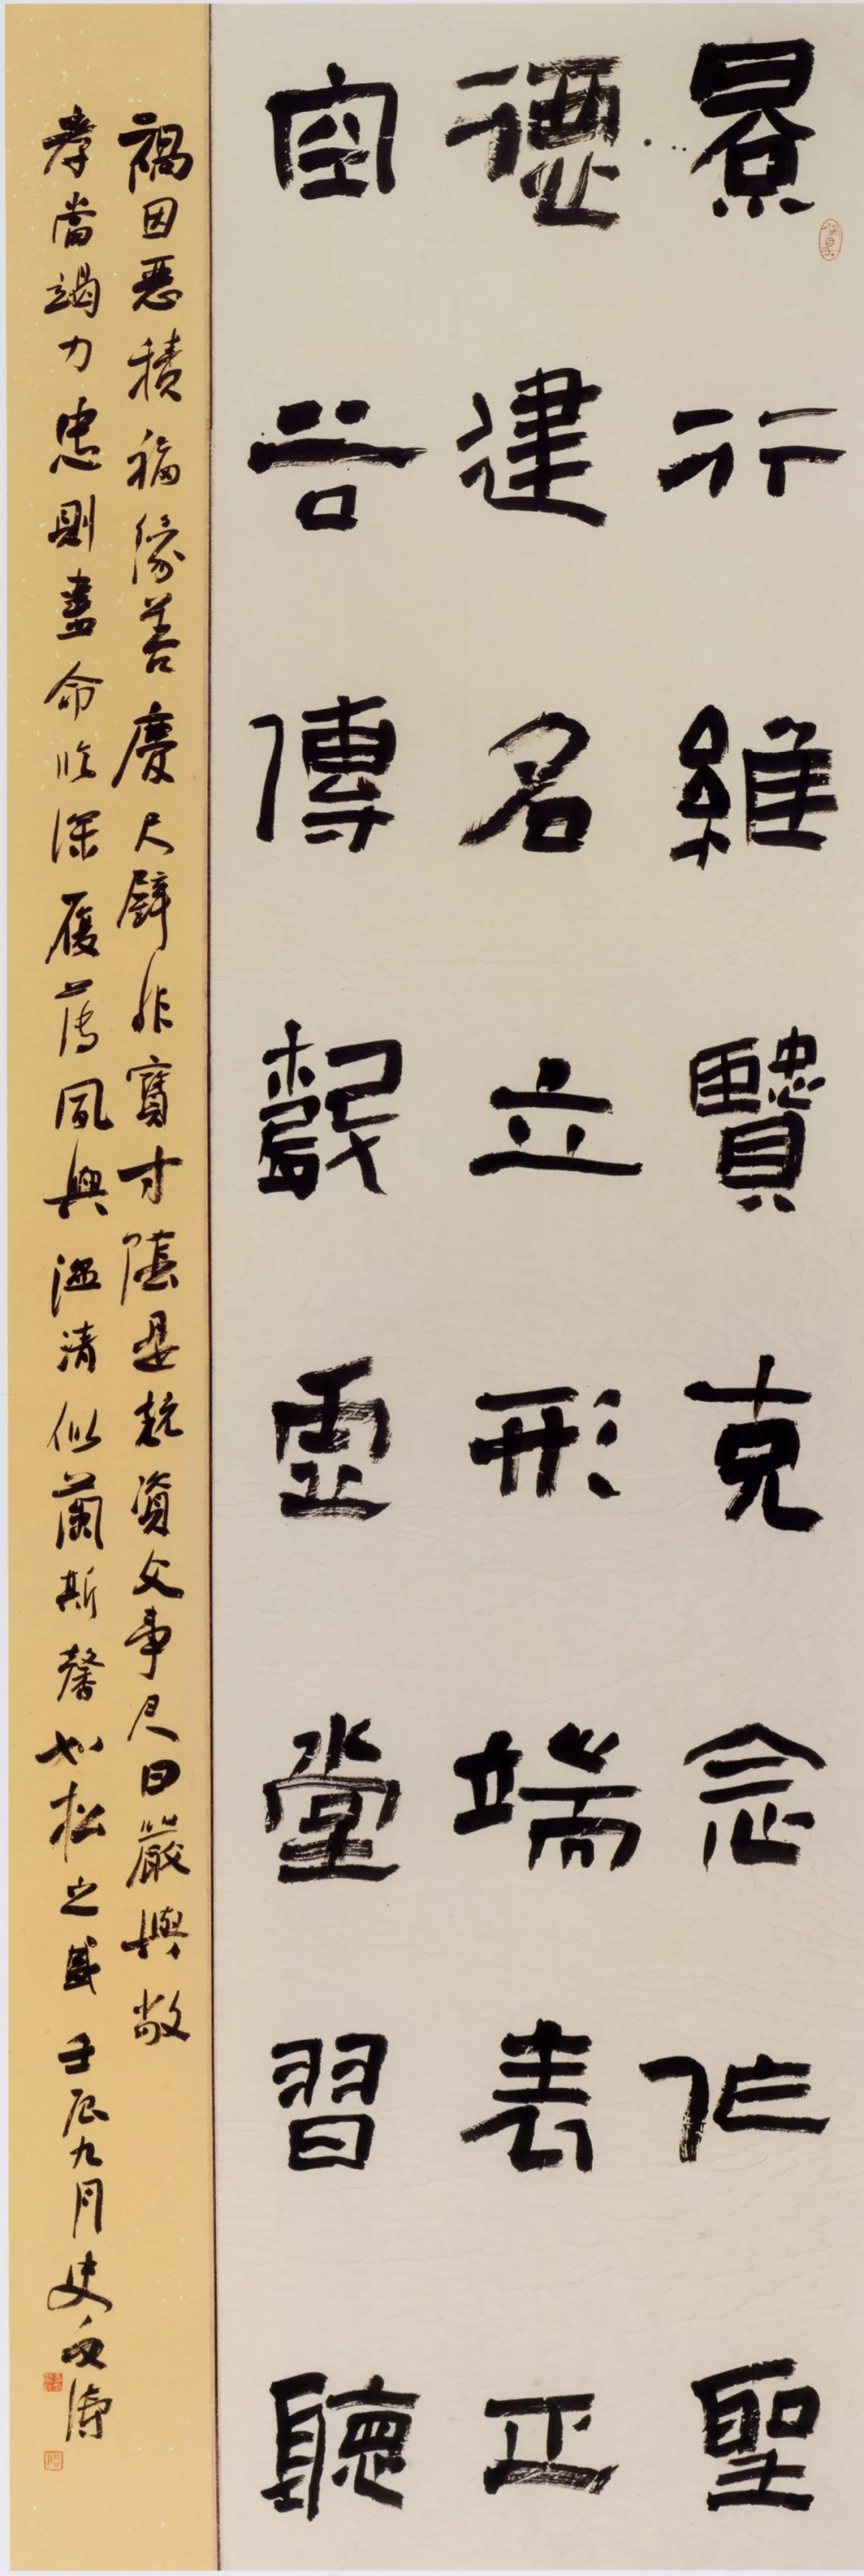 景行維賢克念作聖
德建名立形端表正
空谷傳聲虛堂習聽
禍因惡積福緣善慶尺璧非寶寸陰是競資父事君曰嚴與敬
孝當竭力忠則盡命臨深履薄夙興温凊似蘭斯馨如松之盛壬辰九月史文濤